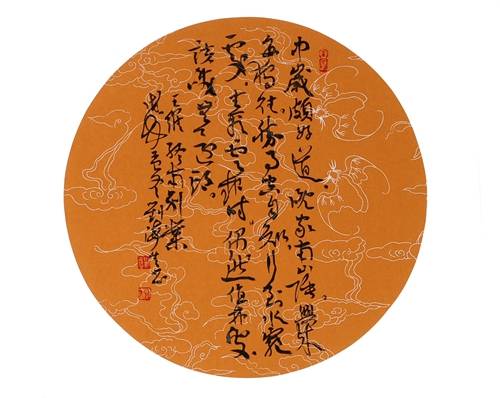 中歲頗好道晚家南山陲興來
每獨往勝事空自知行到水窮
處坐看雲起時偶然值林叟
談笑無還期
王維終南別業